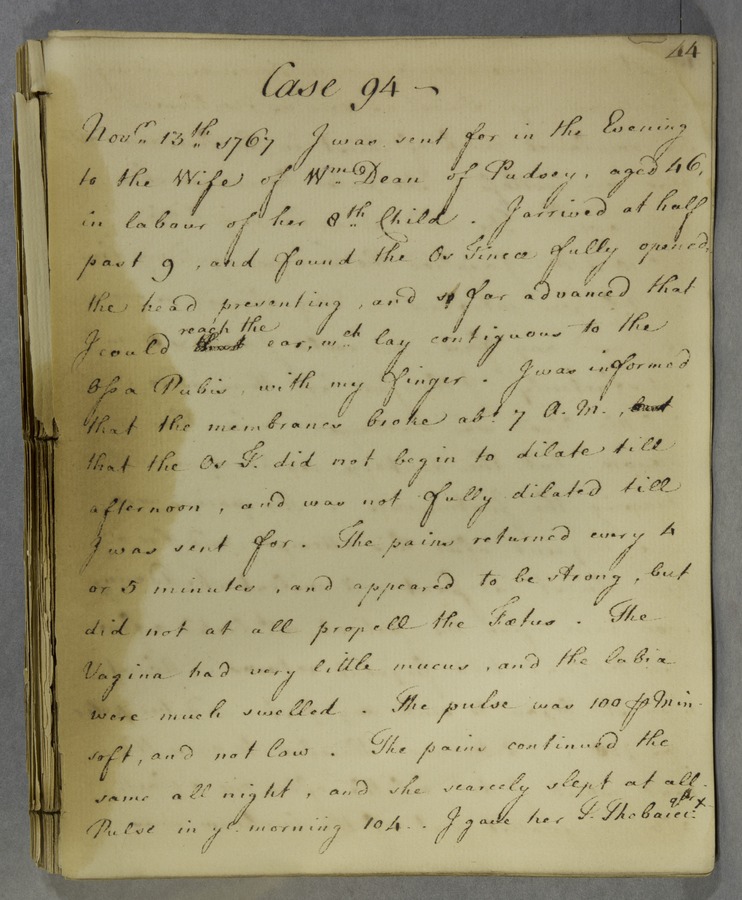 44
Case 94 -
Novr. 13th. 1767 I was sent for in the Evening
to the Wife of Wm. Dean of Pudsey, aged 46,
in labour of her 8th. Child. I arrived at half
past 9, and found the Os Tincæ fully opened,
the head presenting, and so far advanced that
reach the
I could that ear, wch. lay contiguous to the
Ossa Pubis, with my finger. I was informed
that the membranes broke abt. 7 A.M., but
that the Os T. did not begin to dilate till
afternoon, and was not fully dilated till
I was sent for. The pains returned every 4
or 5 minutes, and appeared to be strong, but
did not at all propell the Fœtus. The
Vagina had very little mucus, and the labia
were much swelled. The pulse was 100 p Min.
soft, and not low. The pains continued the
same all night, and she scarcely slept at all.
Pulse in ye. morning 104. I gave her T. Thebaic.